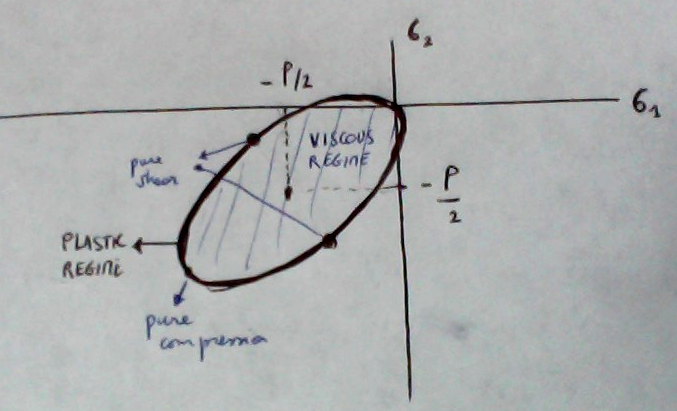 σ₂
- P/2
σ₁
VISCOUS
REGIME
pure
shear
- P
2
PLASTIC
REGIME
pure
compression